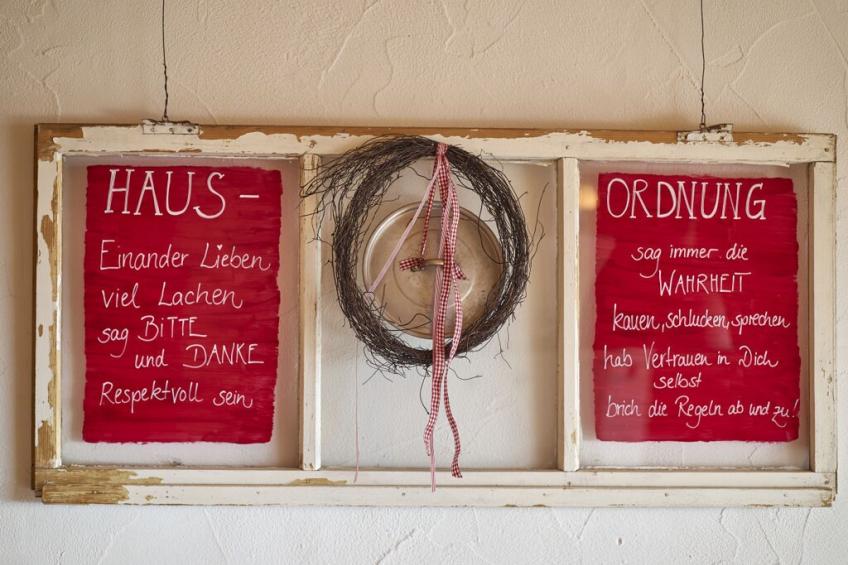 HAUS-
Einander Lieben
viel Lachen
sag BiTTE
und DANKE
Respektvoll sein
ORDNUNG
sag immer die
WAHRHEIT
kauen, schlucken, sprechen
hab Vertrauen in Dich
selbst
brich die Regeln ab und zu!